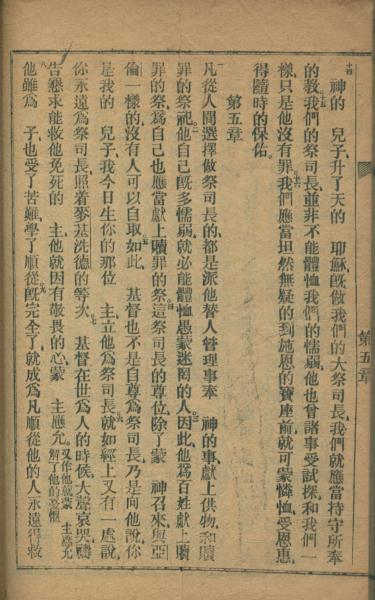 十四 神的 兒子升了天的 耶穌旣做我們的大祭司長我們就應當持守所奉
的教十五我們的祭司長並非不能體恤我們的懦弱他也曾諸事受試探和我們一
樣只是他沒有罪十六我們應當坦然無疑的到施恩的寶座前就可蒙憐恤受恩惠
得隨時的保佑
第五章
一凡從人間選擇做祭司長的都是派他替人管理事奉 神的事獻上供物和贖
罪的祭祀二他自己旣多懦弱就必能體恤愚蒙迷罔的人三因此他爲百姓獻上贖
罪的祭爲自己也應當獻上贖罪的祭四這祭司長的尊位除了蒙 神召來與亞
倫一樣的沒有人可以自取如此五 基督也不是自尊爲祭司長乃是向他說你
是我的 兒子我今日生你的那位 主立他爲祭司長六就如經上又有一處說
你永遠爲祭司長照着麥基洗德的等次七 基督在世爲人的時候大聲哀哭禱
告懇求能救他免死的 主他就因有敬畏的心蒙 主應允又作他就蒙 主應允解了他的憂懼
八他雖爲 子也受了苦難學了順從九旣完全了就成爲凡順從他的人永遠得救
第五章